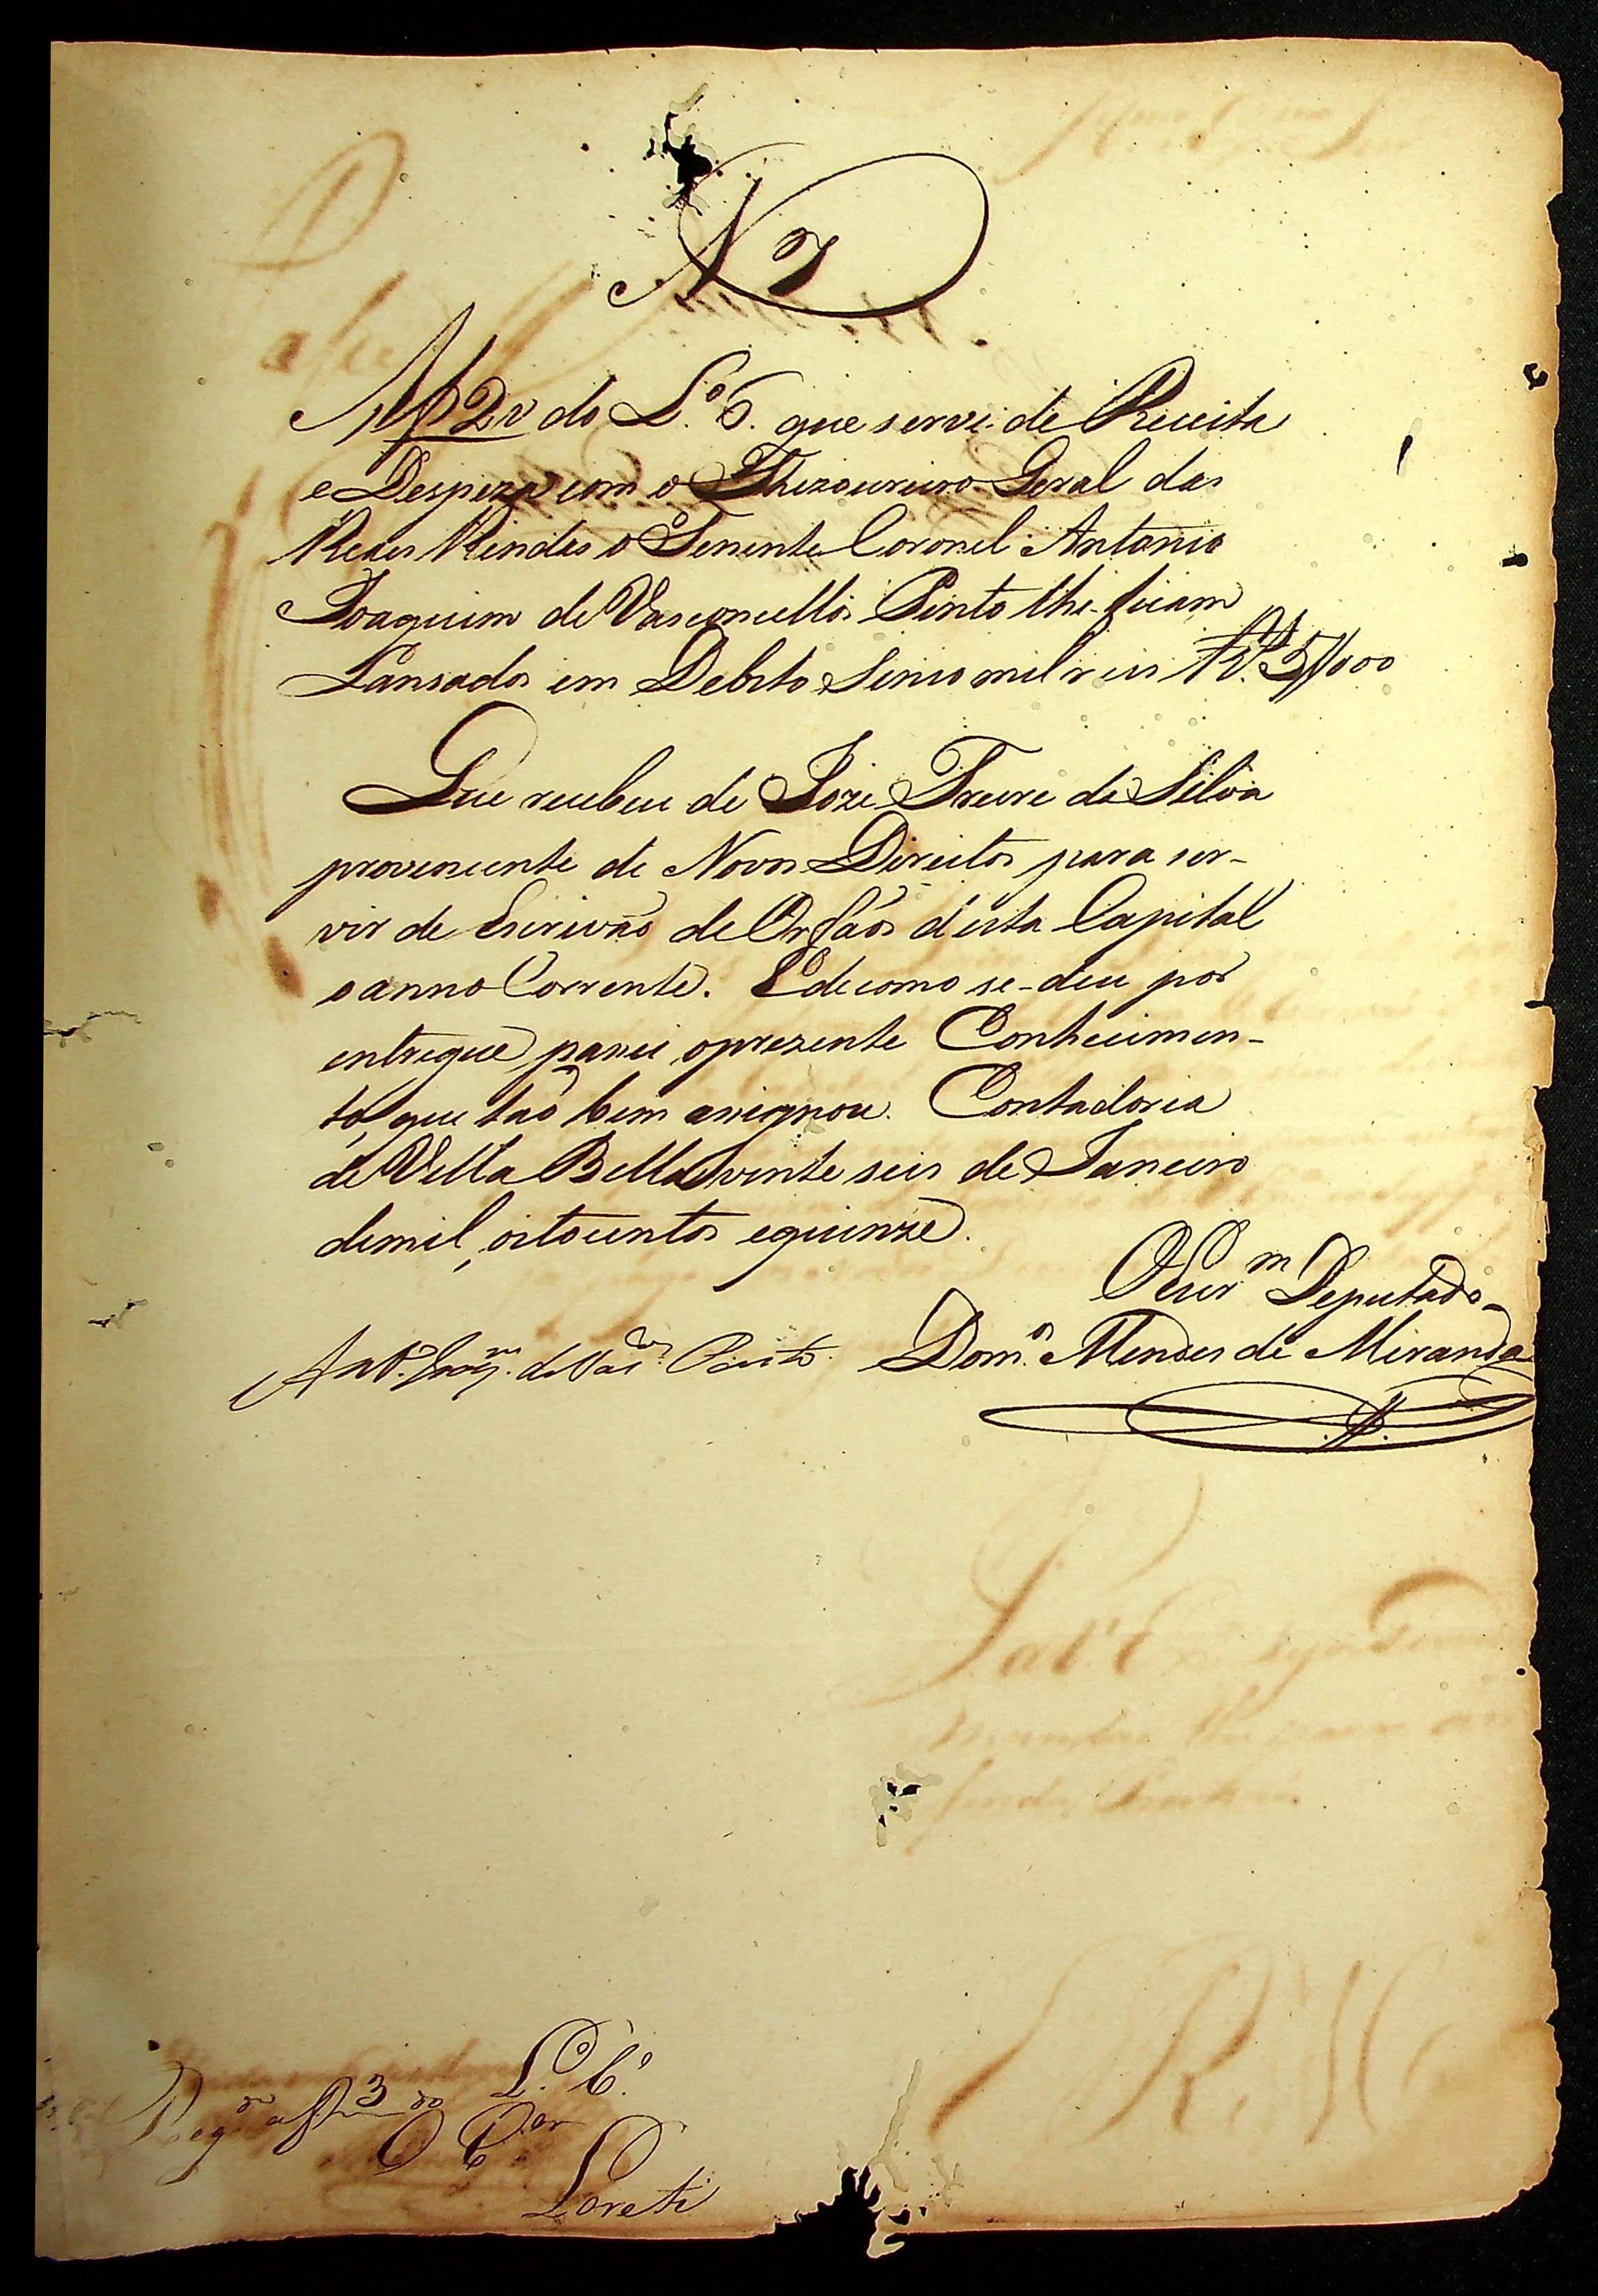 N 7
Af 2v do L.º 6. que serve de Receita
e Despeza com o Thezoureiro Geral das
Reaes Rendas o Tenente Coronel Antonio
Joaquim de Vasconcellos Pinto lhe ficam
Lansados em Debito Sinco mil reis R.s 5//000
Que recebeu de Jozé Freire da Silva
proveniente de Novos Direitos para ser-
vir de Escrivaõ de Orfaõs desta Capital
o anno Corrente. E de como se-deu por
entregue passei o prezente Conhecimen-
to, que taõ bem assignou. Contadoria
de Villa Bella vinte seis de Janeiro
de mil, oitocentos e quinze.
O Escr.m Deputado
Ant.º Joaq.m de Vas.los Pinto. Dom.os Mendes de Miranda
Reg.do a f 3 do L.º 6.º
O
Loreti